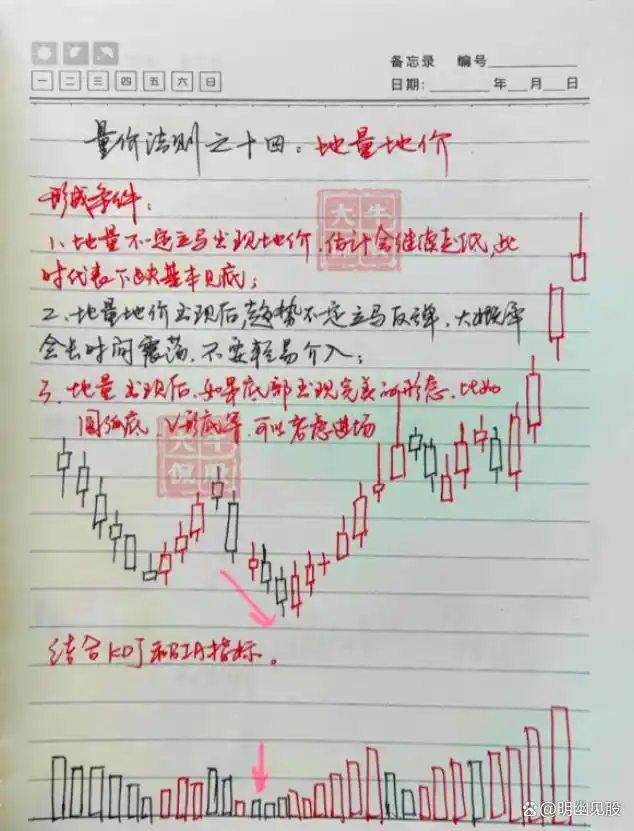 备忘录 编号
一 二 三 四 五 六 日
日期: 年 月 日
量价法则之十四：地量地价
形成条件：
1、地量不一定立马出现地价，估计会继续走低，此
时代表下跌基本见底；
2、地量地价出现后，趋势不一定立马反弹，大概率
会长时间震荡，不要轻易介入；
3、地量出现后，如果底部出现完美的形态，比如
圆弧底、V形底等，可以考虑进场
大牛
大牛
侃股
结合KDJ和BIAS指标。
@明幽见股